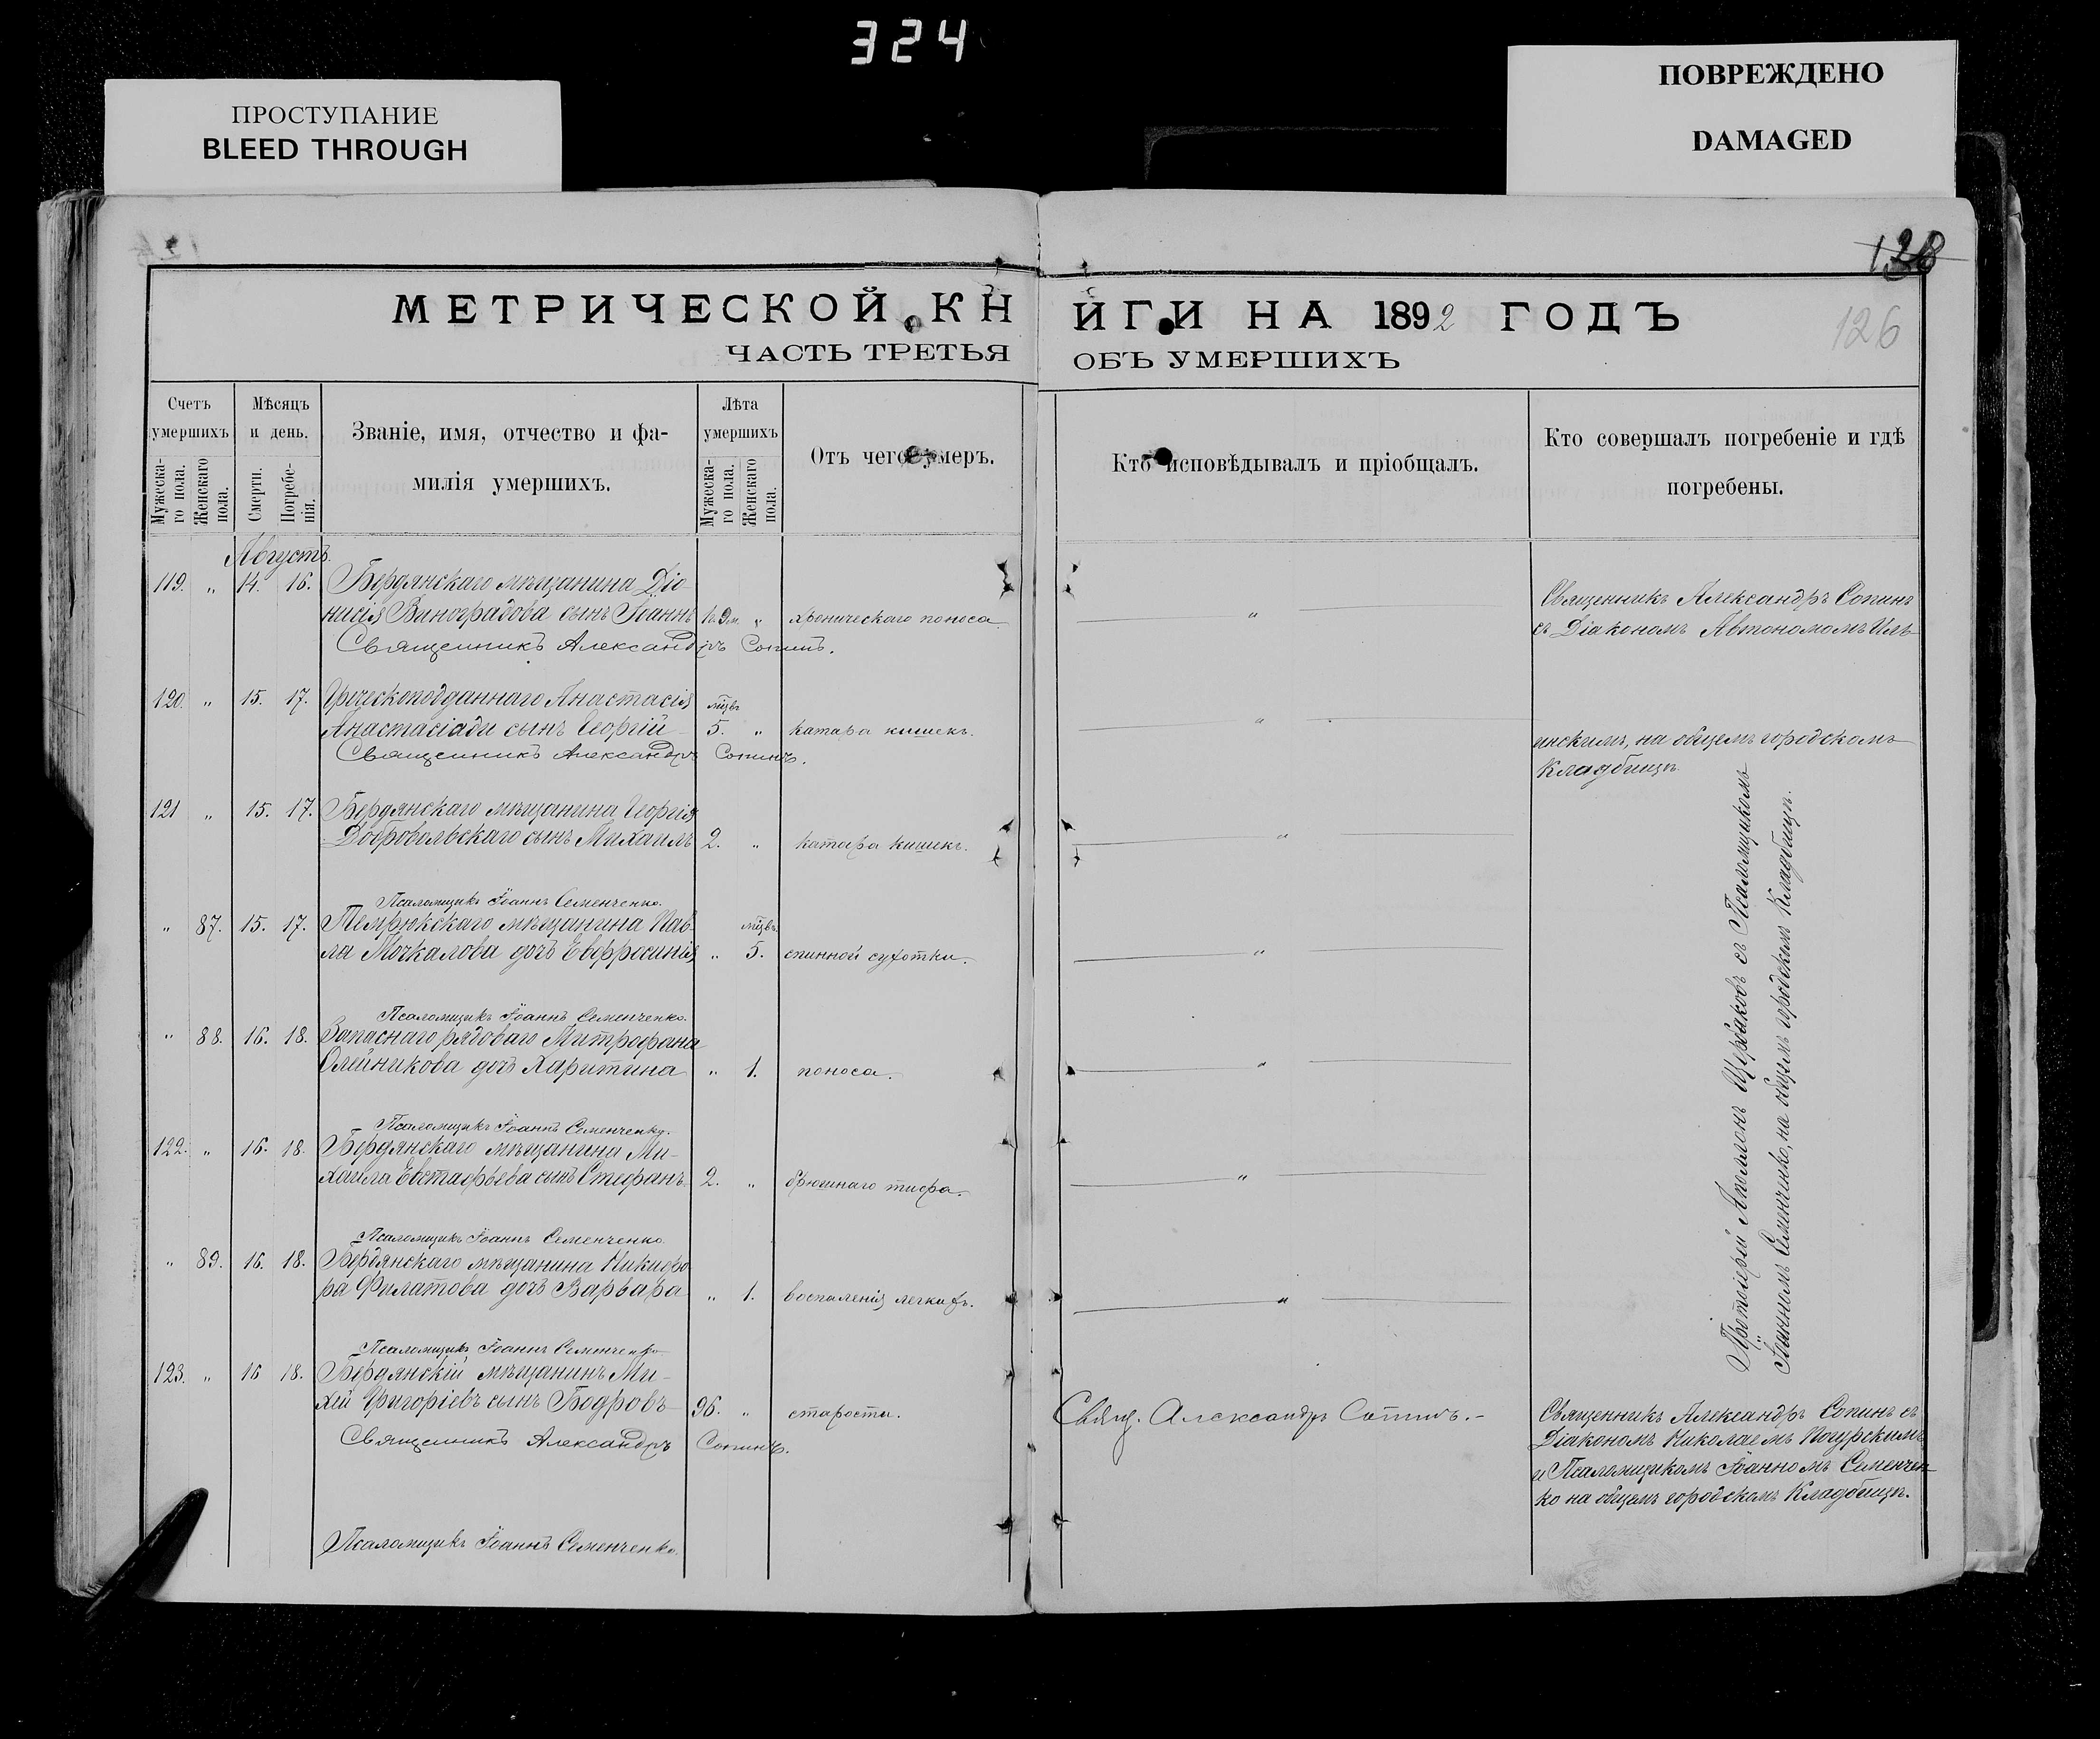 324
ПРОСТУПАНИЕ
BLEED THROUGH
ПОВРЕЖДЕНО
DAMAGED
126
МЕТРИЧЕСКОЙ КНИГИ НА 1892 ГОДЪ
ЧАСТЬ ТРЕТЬЯ ОБЪ УМЕРШИХЪ
Счетъ умершихъ
Мужеска-
го пола.
Женскаго
пола.
Мѣсяцъ
и день.
Смерти.
Погребе-
нія.
Званіе, имя, отчество и фа-
милія умершихъ.
Лѣта
умершихъ
Мужеска-
го пола.
Женскаго
пола.
Отъ чего умеръ.
Кто исповѣдывалъ и пріобщалъ.
Кто совершалъ погребеніе и гдѣ
погребены.
Августъ.
119. „ 14. 16. Бердянскаго мѣщанина Діо-
нисія Виноградова сынъ Іоаннъ „ хроническаго поноса „
Священникъ Александръ Сопинъ.
Священникъ Александръ Сопинъ
съ Діакономъ Автономомъ Иль-
120. „ 15. 17. Греческоподданнаго Анастасія мѣс.
Анастасіади сынъ Георгій 5. „ катара кишекъ. „
Священникъ Александръ Сопинъ.
инскимъ, на общемъ городскомъ
Кладбищѣ.
121 „ 15. 17. Бердянскаго мѣщанина Георгія
Добровольскаго сынъ Михаилъ 2. „ катара кишекъ. „
Псаломщикъ Іоаннъ Семенченко.
„ 87. 15. 17. Темрюкскаго мѣщанина Пав-
ла Мочкалова дочь Евфросинія „ 5. спинной сухотки. „
Псаломщикъ Іоаннъ Семенченко.
„ 88. 16. 18. Запаснаго рядоваго Митрофана
Олейникова дочь Харитина „ 1. поноса. „
Псаломщикъ Іоаннъ Семенченко.
122. „ 16. 18. Бердянскаго мѣщанина Ми-
хаила Евстафьева сынъ Стефанъ 2. „ брюшнаго тифа. „
Псаломщикъ Іоаннъ Семенченко.
„ 89. 16. 18. Бердянскаго мѣщанина Никифо
ра Филатова дочь Варвара „ 1. воспаленія легкихъ. „
Псаломщикъ Іоаннъ Семенченко
Протоіерей Аполлонъ Щербаковъ съ Псаломщикомъ
Іоанномъ Семенченко, на общемъ городскомъ Кладбищѣ.
123. „ 16 18. Бердянскій мѣщанинъ Ми-
хей Григоріевъ сынъ Бодровъ 96. „ старости. Свящ. Александръ Сопинъ.-
Священникъ Александръ Сопинъ.
Священникъ Александръ Сопинъ съ
Діакономъ Николаемъ
и Псаломщикомъ Іоанномъ Семенчен-
ко на общемъ городскомъ Кладбищѣ.
Псаломщикъ Іоаннъ Семенченко.